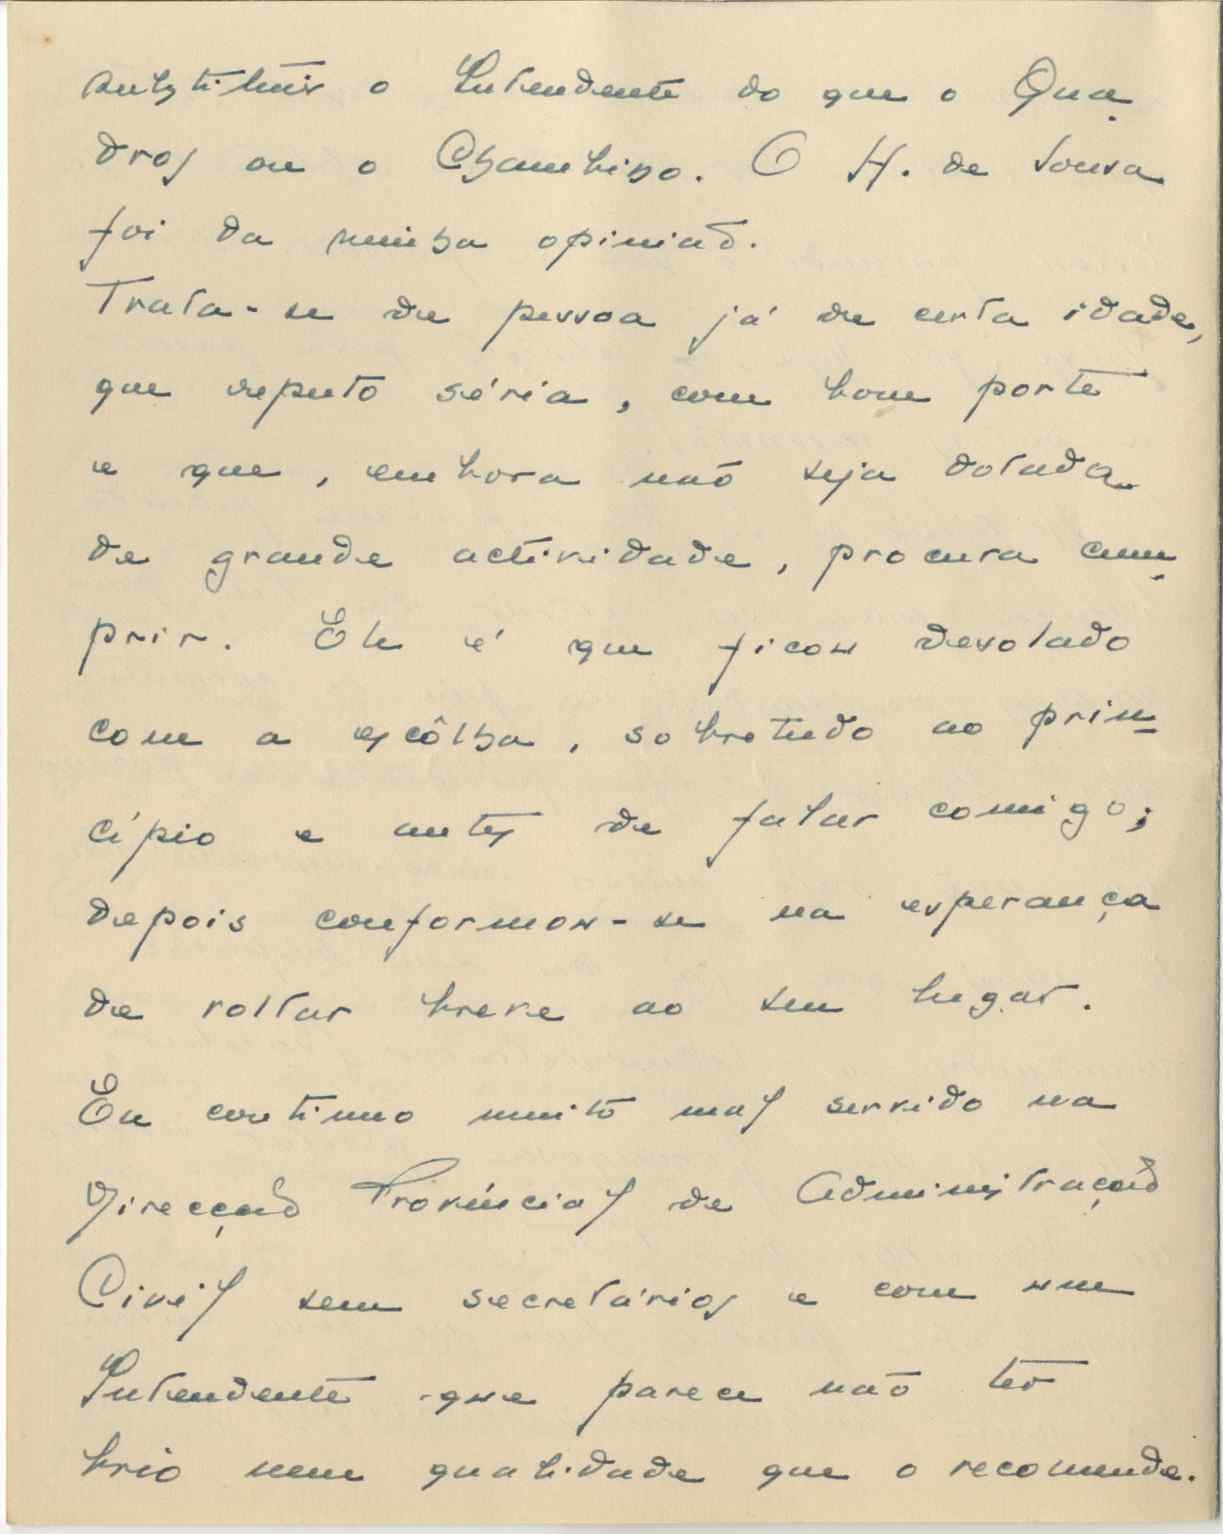 substituir o Intendente do que o Qua-
dros ou o Chambino. O H. de Sousa
foi da minha opinião.
Trata-se de pessoa já de certa idade,
que reputo séria, com bom porte
e que, embora não seja dotada
de grande actividade, procura cum-
prir. Ele é que ficou desolado
com a escôlha, sobretudo ao prin-
cípio e antes de falar comigo;
depois conformou-se na esperança
de voltar breve ao seu lugar.
Eu continuo muito mal servido na
Direcção Provincial de Administração
Civil sem secretários e com um
Intendente que parece não ter
brio nem qualidade que o recomende.